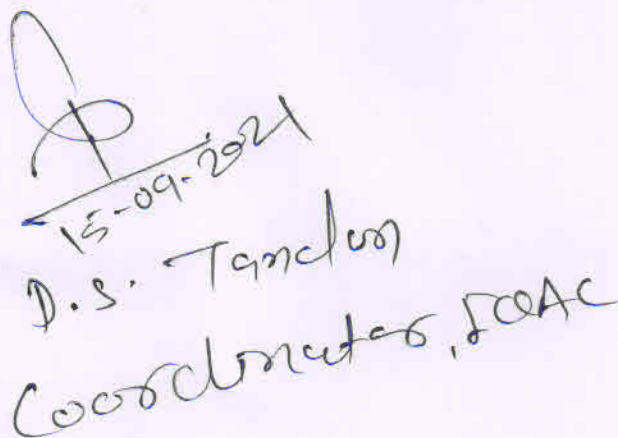 15-09-2021
D.S. Tandon
Coordinator, IQAC